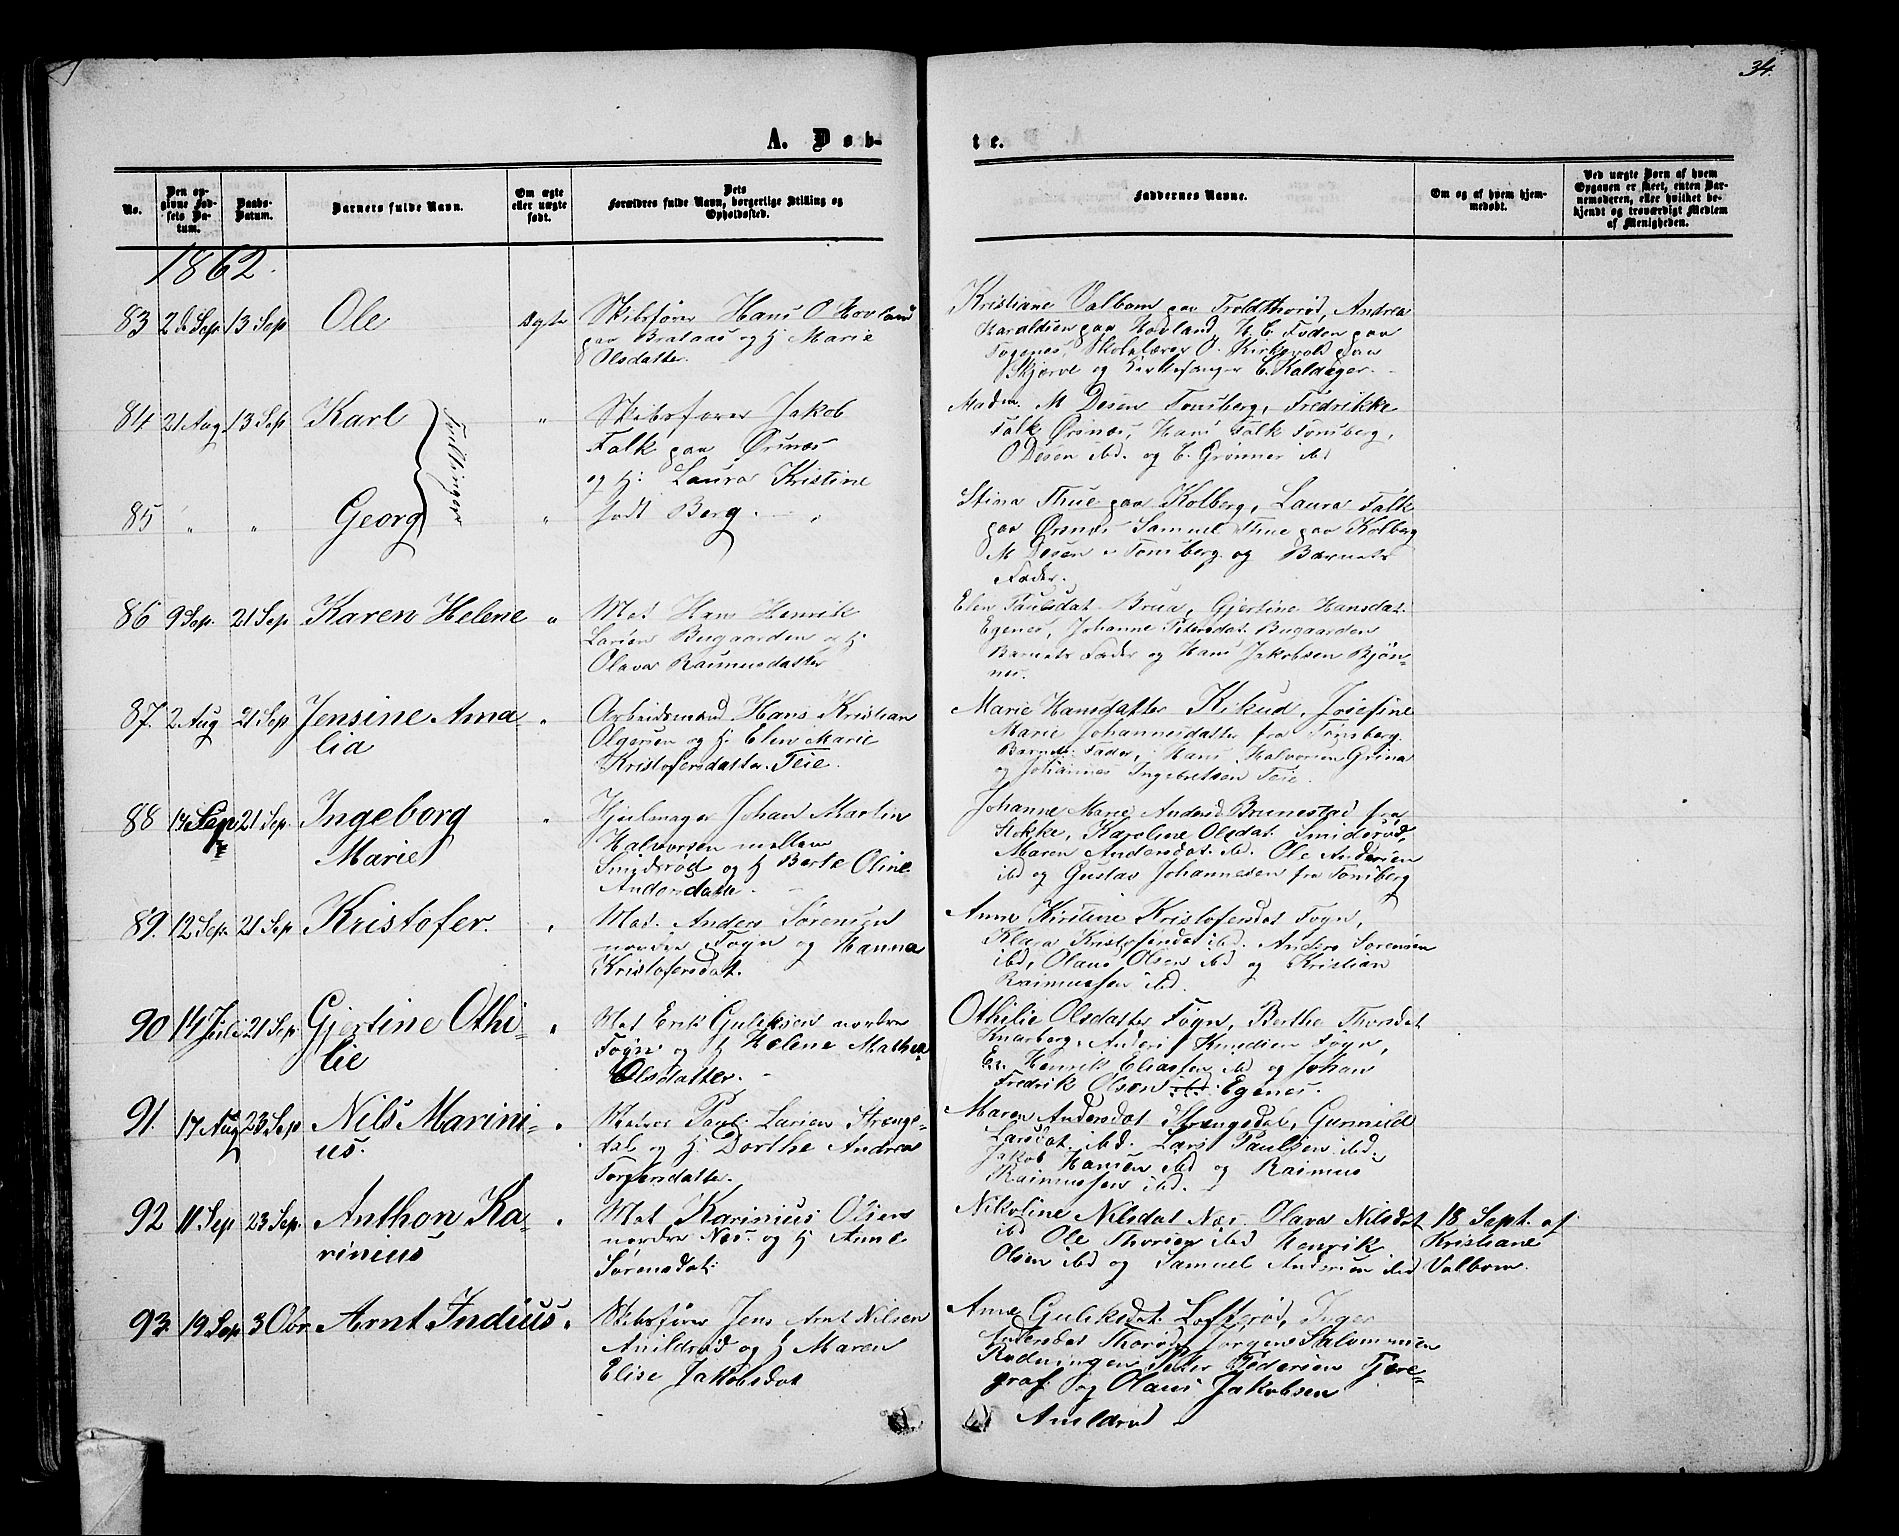 34.
A. Døb-
te.
No.
Den opgivne Fødsels Datum.
Daabs-Datum.
Barnets fulde Navn.
Om ægte eller uægte født.
Dets Forældres fulde Navn, borgerlige Stilling og Opholdssted.
Faddernes Navne.
Om og af hvem hjemmedøbt.
Ved uægte Børn af hvem Opgaven er skeet, enten Barnemoderen, eller hvilket bekjendt og troværdigt Medlem af Menigheden.
1862.
83 Sep 13 Sep Ole ægte Skibsfører Hans O Hovland
paa Brataas og H Marie
Olsdatter.
Kristiane Valbom paa Troldthorød, Andrea
Haraldsen paa Hovland, H. C. Foden paa
Skolelærer O. Kirkevold paa
Skjerve og Kirkesanger C. Kaldager.
84 21 Aug 13 Sep Karl " Skibsfører Jakob
Falk paa Ørsnæs
og H: Laura Kristine
Tvillinger
Madm. M Desen Tønsberg, Fredrikke
Falk Ørsnæs, Hans Falk Tønsberg,
O Desen ibd. og C. Grønner ibd
85 " " Georg " født Berg.
Stina Thue paa Kolberg, Laura Falk
paa Ørsnæs Samuel Thue paa Kolberg
M Desen Tønsberg og Barnets
Fader.
86 9 Sep. 21 Sep Karen Helene " Mat Hans Henrik
Larsen Bugaarden og H
Olava Rasmusdatter
Elen Paulsdat Brua, Gjertine Hansdat.
Egenes, Johanne Petersdat. Bugaarden
Barnets Fader og Hans Jakobsen Bjøn-
nes.
87. 2 Aug 21 Sep Jensine Ama " Arbeidsmand Hans Kristian
lia Olgersen og H. Elen Marie
Kristofersdatter. Teie.
Marie Hansdatter Kikud, Josefine
Marie Johannesdatter fra Tønsberg.
Barnets Fader, Hans Halvorsen Grina
og Johannes Ingebretsen Teie.
88 14 Sep 21 Sep. Ingeborg " Hjulmager Johan Martin
Marie Halvorsen mellem
Smidsrød og H Berte Oline
Andersdatter.
Johanne Marie Andersd Brunestad fra
Stokke, Karoline Olsdat. Smidsrød,
Maren Andersdat. ibd. Ole Andersen
ibd og Gustav Johannesen fra Tønsberg
89. 12 Sep. 21 Sep Kristofer. " Mat. Anders Sørensen
nordre Føyn og Hanna
Kristofersdat.
Anne Kirstine Kristofersdat Føyn,
Klara Kristofersdat ibd. Anders Sørensen
ibd, Olaus Olsen ibd og Kristian
Rasmussen ibd.
90 14 Juli 21 Sep Gjertine Othi- " Mat Erik Guliksen nordre
lie Føyn og H Helene Mathea
Olsdatter.
Othilie Olsdatter Føyn, Berthe Thorsdat
Knarberg, Anders Knudsen Føyn,
Henrik Eliassen ibd og Johan
Fredrik Olsen ibd Egenes.
91. 17 Aug 23 Sep Nils Marini- " Matros Paul Larsen Strængs-
us. dal og H. Dorthe Andrea
Torgersdatter.
Maren Andersdat Strengsdal, Gunnild
Larsdat ibd. Lars Paulsen ibd.
Jakob Hansen ibd og Rasmus
Rasmussen ibd.
92 11 Sep 23 Sep. Anthon Ka- " Mat Karinius Olsen
rinius nordre Næs. og H Anne
Sørensdat.
Nikoline Nilsdat Næs Olava Nilsdat
ibd Ole Thorsen ibd Henrik
Olsen ibd og Samuel Andersen ibd
18 Sept. af
Kristiane
Valbom.
93. 19 Sep 3 Obr Arnt Indius " Skibsfører Jens Arnt Nilsen
Arildsrød og H Maren
Elise Jakobsdat
Anne Guliksdat Lofterød, Inger
Andersdat Thorød, Jørgen Salomonsen
Rødningen, Peter Pedersen Tjere-
graf og Olaus Jakobsen